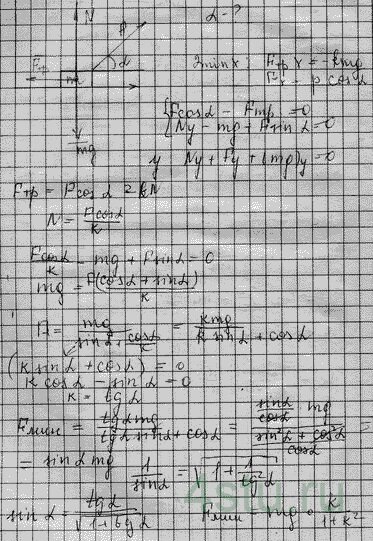 N
F
α - ?
Fтр
α
m
mg
x: Fтр x = -kmg
Fx = F cosα
{Fcosα - Fтр = 0
{Ny - mg + Fsinα = 0
y Ny + Fy + (mg)y = 0
Fтр = Fcosα = kN
N = Fcosα/k
Fcosα/k - mg + Fsinα = 0
mg = F(cosα + sinα)/k
F = mg/(sinα + cosα/k) = kmg/(k sinα + cosα)
(k sinα + cosα) = 0
k cosα - sinα = 0
k = tgα
Fмин = tgα mg/(tgα sinα + cosα) = (sinα/cosα mg)/((sin²α + cos²α)/cosα)
= sinα mg 1/sinα = √(1 + 1/tg²α)
sinα = tgα/√(1 + tgα) Fмин = mg · k/(1+k²)
4stu.ru